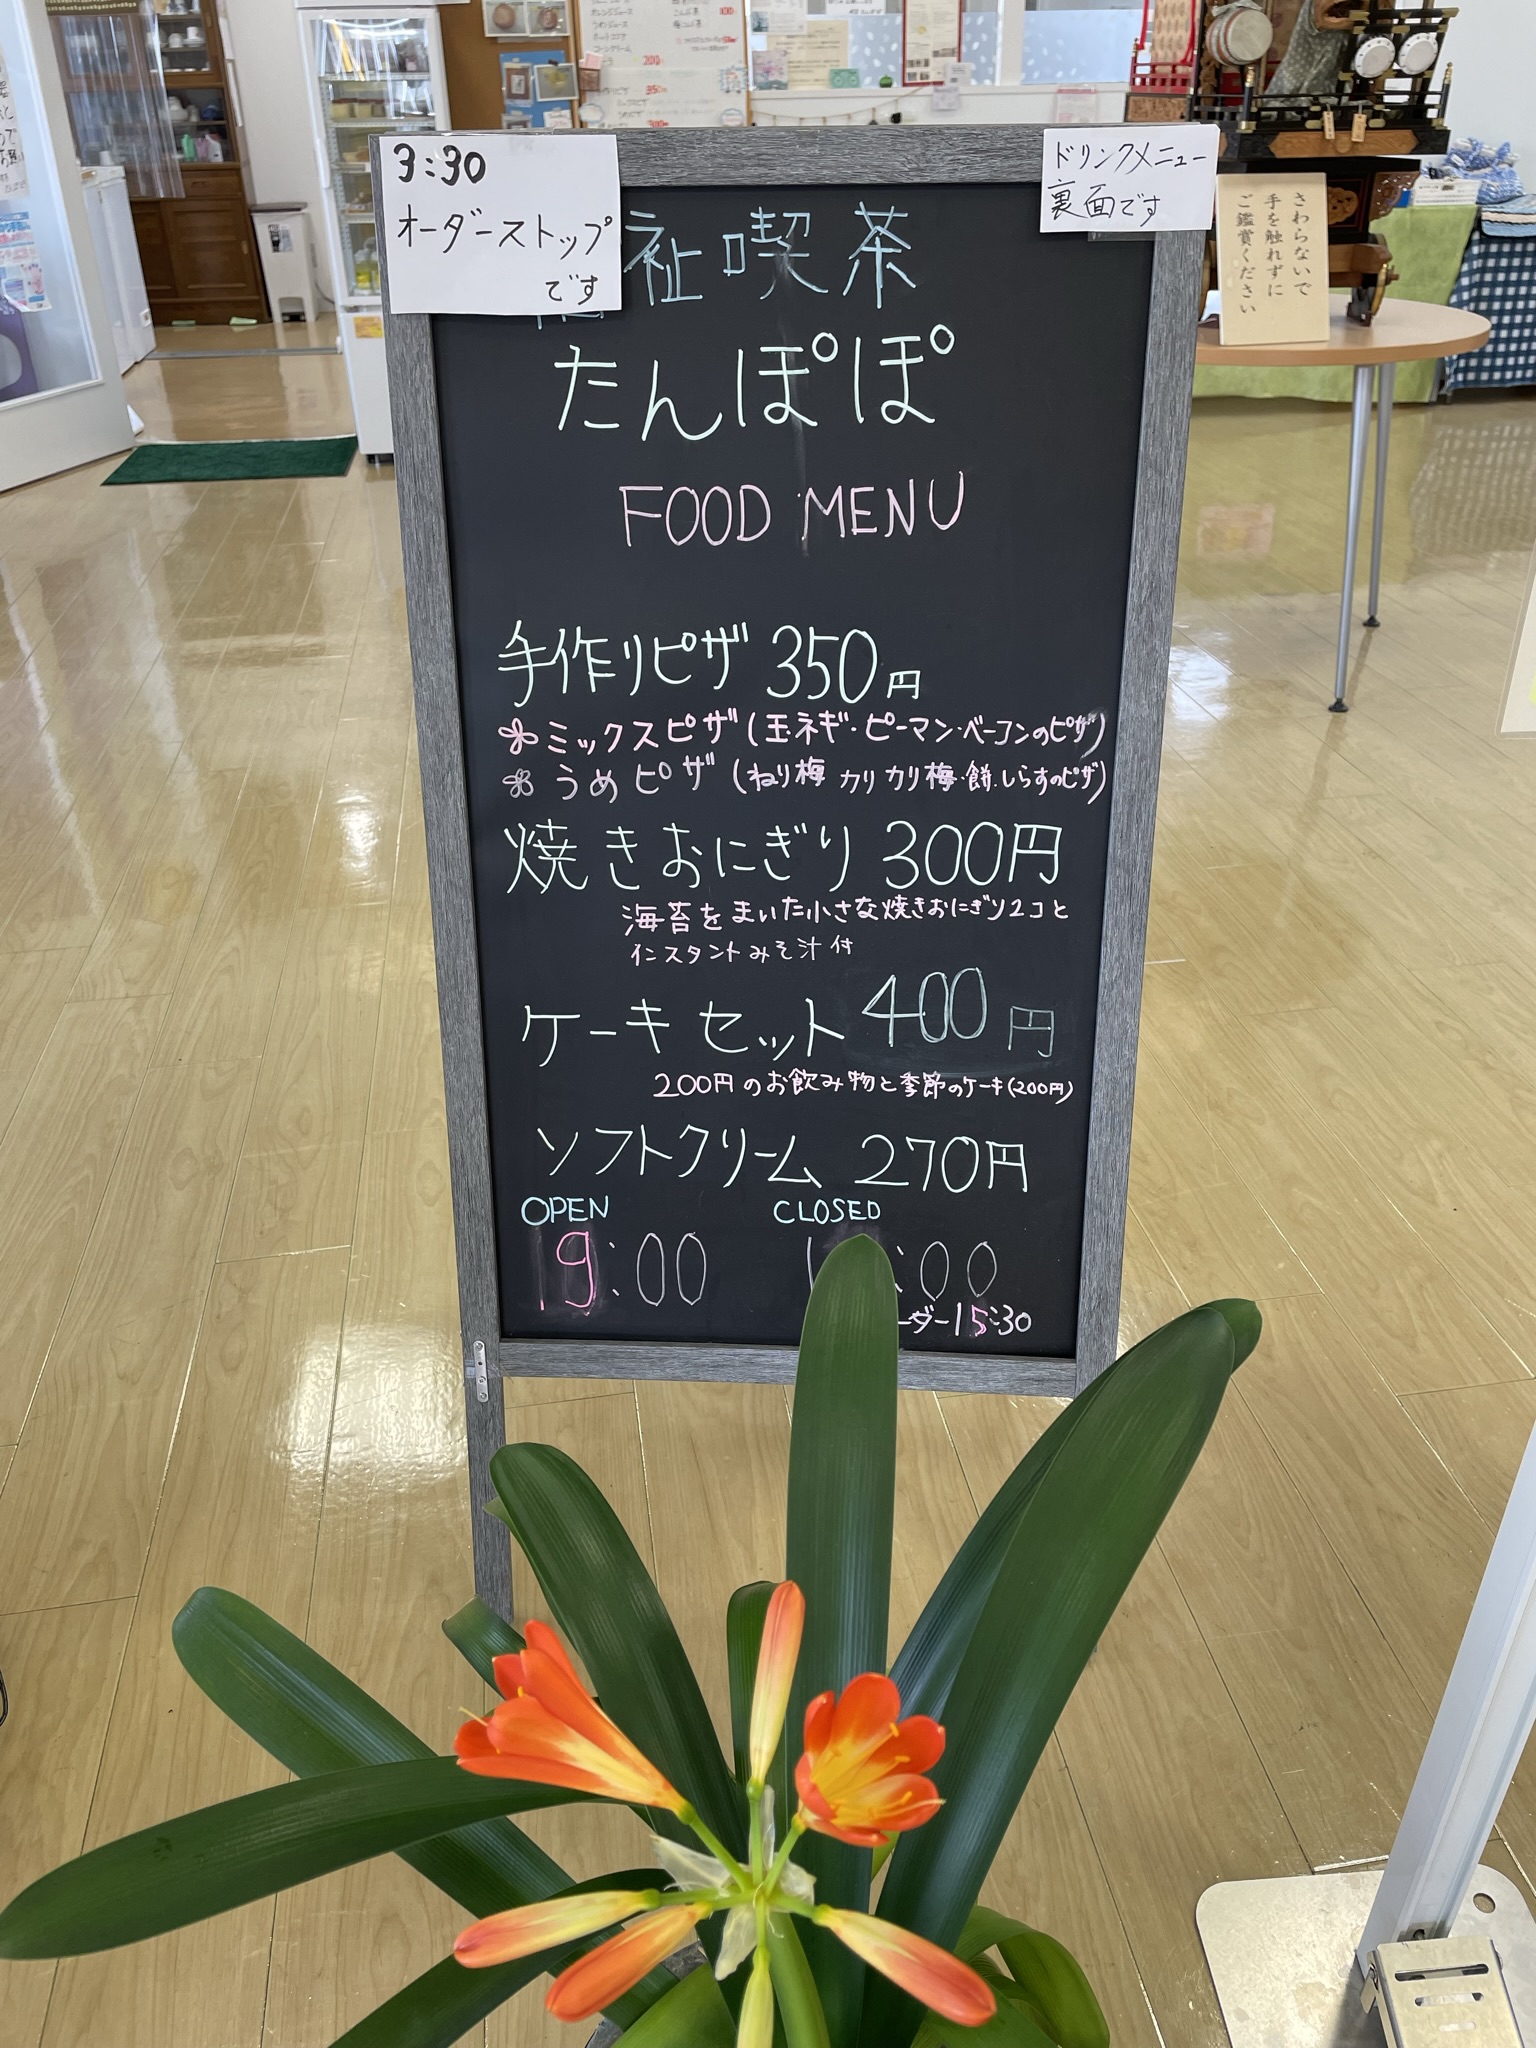 3:30
オーダーストップ
です
ドリンクメニュー
裏面です
祉喫茶
たんぽぽ
FOOD MENU
手作りピザ 350円
ミックスピザ(玉ネギ・ピーマン・ベーコンのピザ)
うめピザ(ねり梅 カリカリ梅・餅・しらすのピザ)
焼きおにぎり 300円
海苔をまいた小さな焼きおにぎり2コと
インスタントみそ汁付
ケーキセット 400円
200円のお飲み物と季節のケーキ(200円)
ソフトクリーム 270円
OPEN CLOSED
19:00 1 :00
ーダー15:30
さわらないで
手を触れずに
ご鑑賞ください
200
350